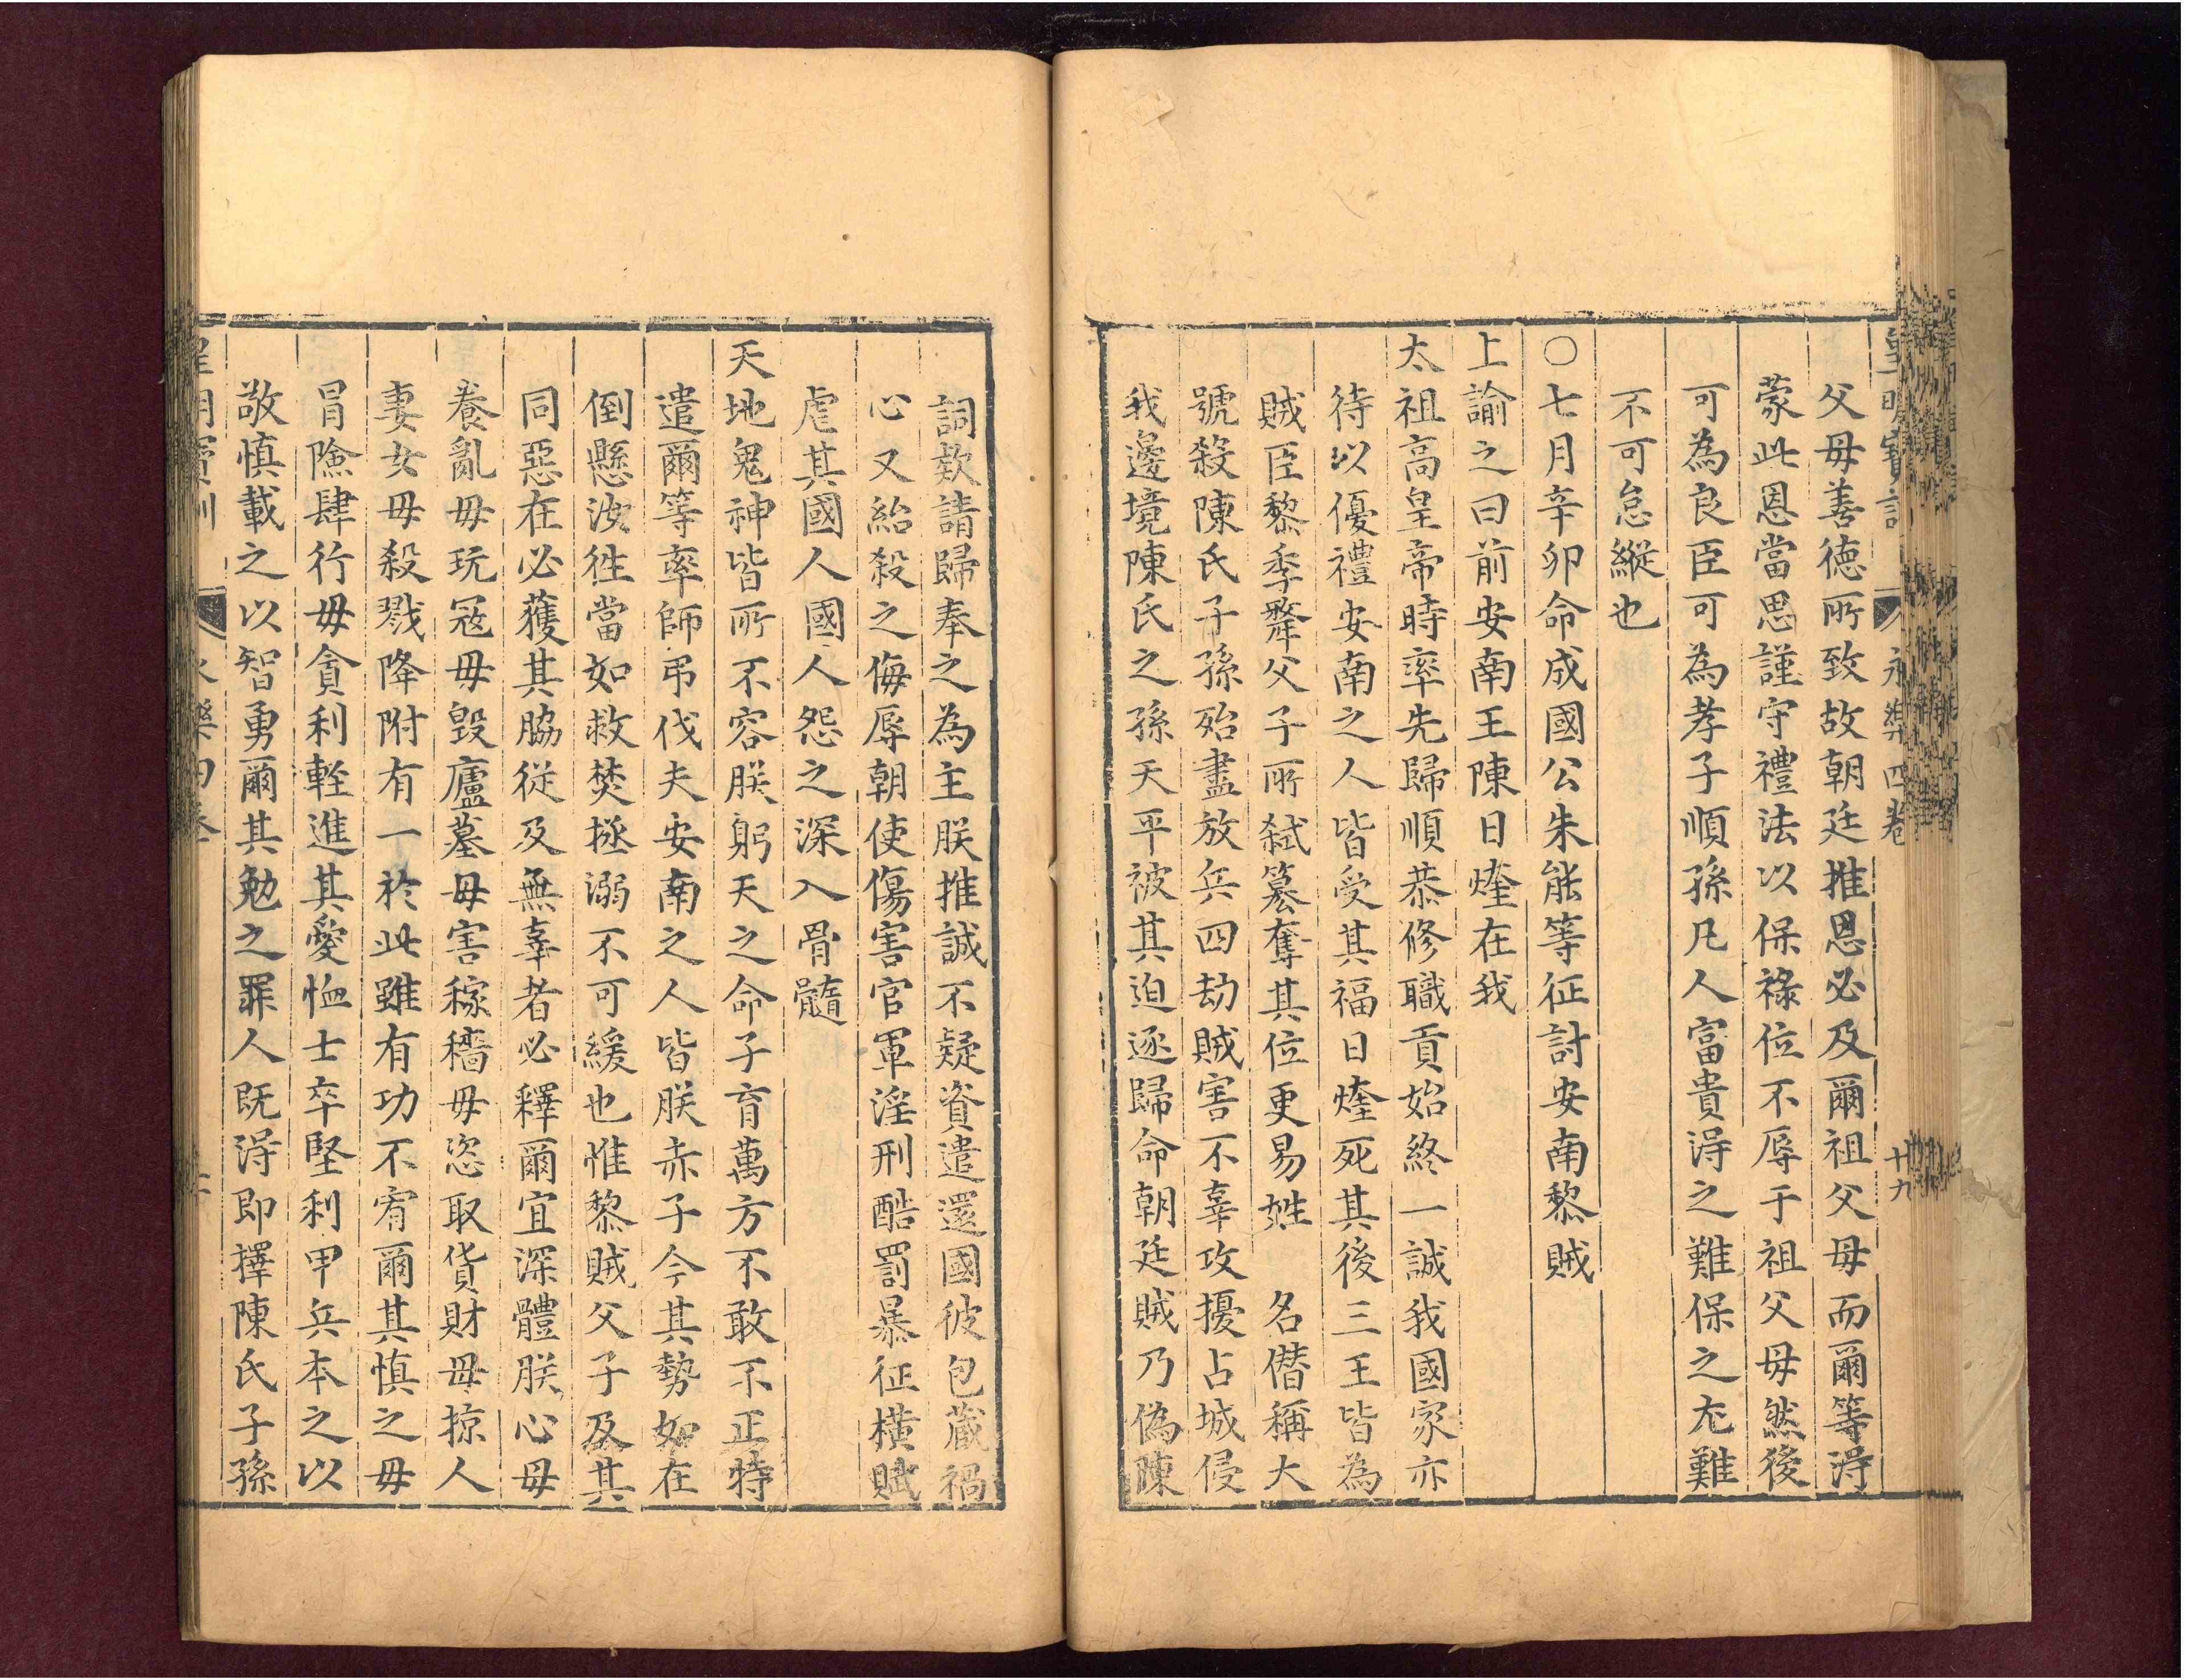 皇明寶訓 永樂四卷 廿九
父母善德所致故朝廷推恩必及爾祖父母而爾等淂
蒙此恩當思謹守禮法以保祿位不辱于祖父母然後
可為良臣可為孝子順孫凡人富貴淂之難保之尤難
不可怠縱也
○七月辛卯命成國公朱能等征討安南黎賊
上諭之曰前安南王陳日煃在我
太祖高皇帝時率先歸順恭修職貢始終一誠我國家亦
待以優禮安南之人皆受其福日煃死其後三王皆為
賊臣黎季犛父子所弑篡奪其位更易姓名僭稱大
號殺陳氏子孫殆盡放兵四劫賊害不辜攻擾占城侵
我邊境陳氏之孫天平被其迫逐歸命朝廷賊乃偽陳
詞欵請歸奉之為主朕推誠不疑資遣還國彼包蔵禍
心又紿殺之侮辱朝使傷害官軍淫刑酷罰暴征橫賦
虐其國人國人怨之深入骨髓
天地鬼神皆所不容朕躬天之命子育萬方不敢不正特
遣爾等率師弔伐夫安南之人皆朕赤子今其勢如在
倒懸汝徃當如救焚拯溺不可緩也惟黎賊父子及其
同惡在必獲其脇從及無辜者必釋爾宜深體朕心毋
養亂毋玩寇毋毀廬墓毋害稼穡毋恣取貨財毋掠人
妻女毋殺戮降附有一於此雖有功不宥爾其慎之毋
冒險肆行毋貪利輕進其愛恤士卒堅利甲兵本之以
敬慎載之以智勇爾其勉之罪人既淂即擇陳氏子孫
皇明寶訓 永樂四卷